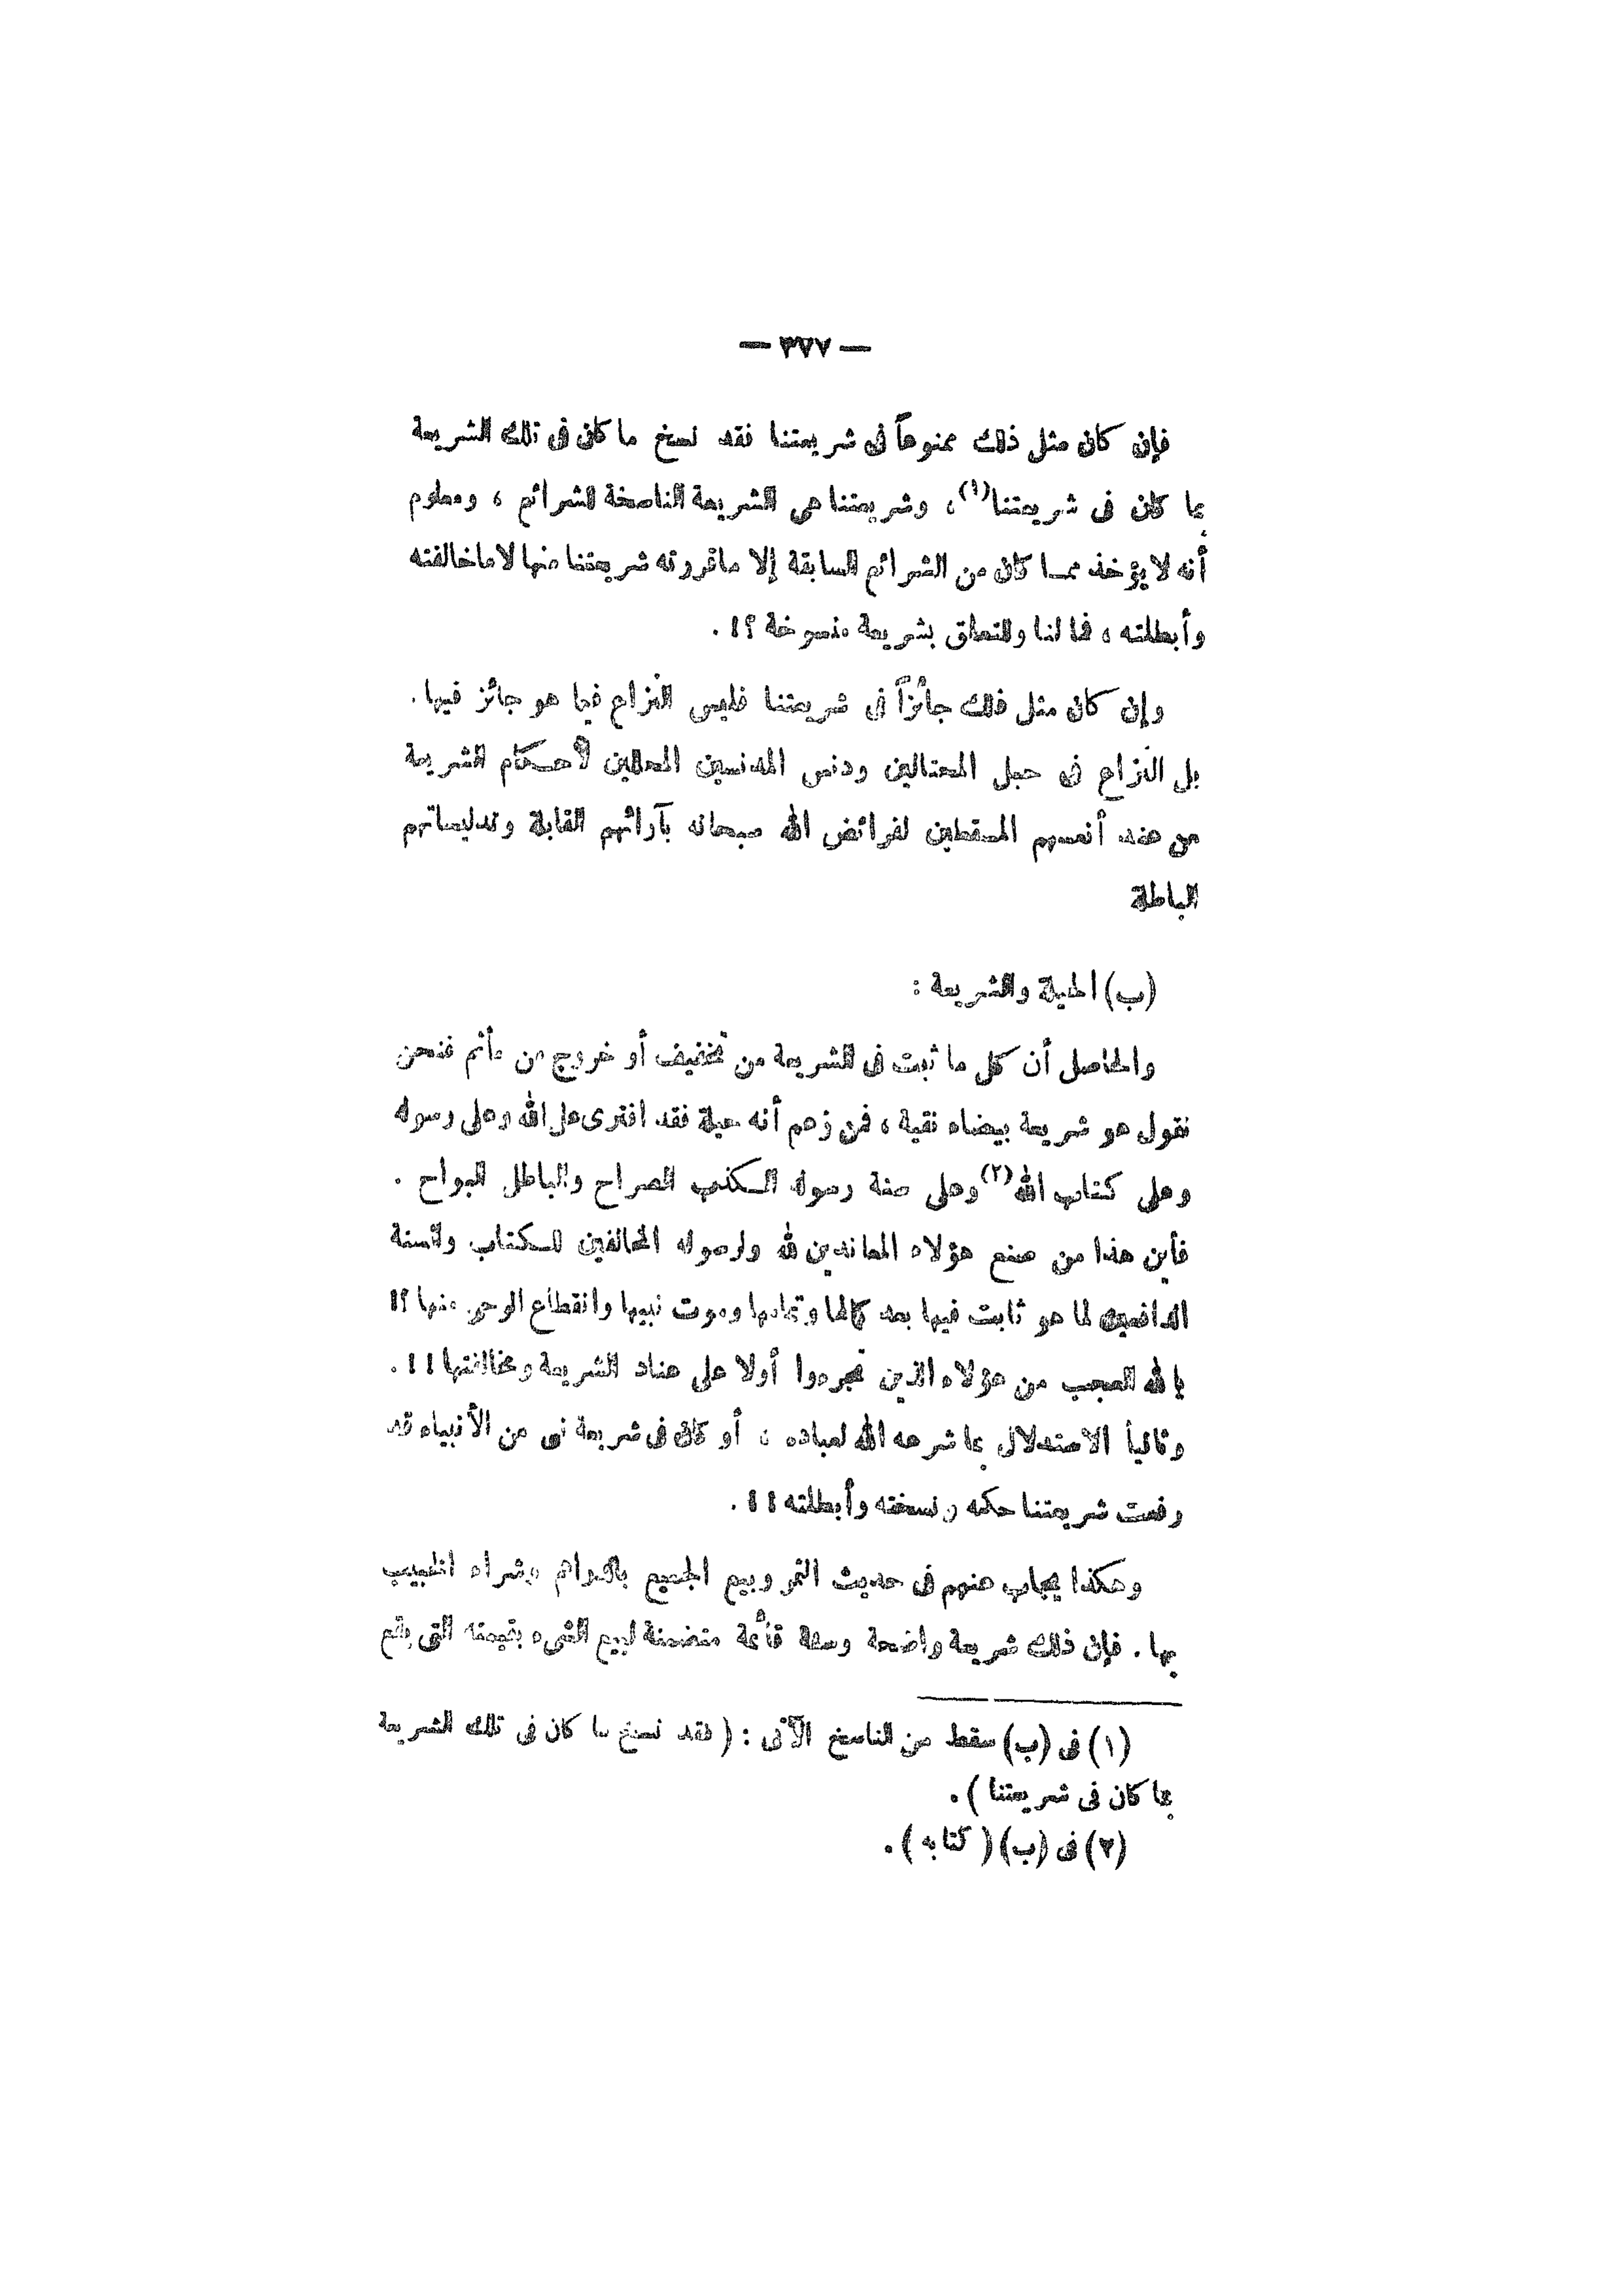 — ٣٧٧ —
فإن كان مثل ذلك ممنوعاً فى شريعتنا فقد نسخ ما كان فى تلك الشريعة
بما كان فى شريعتنا(١)، وشريعتنا هى الشريعة الناسخة للشرائع ، ومعلوم
أنه لا يؤخذ مما كان من الشرائع السابقة إلا ما قررته شريعتنا منها لا ما خالفته
وأبطلته ، فما لنا والتعلق بشريعة منسوخة ؟! .
وإن كان مثل ذلك جائزاً فى شريعتنا فليس النزاع فيما هو جائز فيها .
بل النزاع فى حيل المحتالين ودنس المدنسين المحللين لأحكام الشريعة
من عند أنفسهم المسقطين لفرائض الله سبحانه بآرائهم وتدليساتهم
الباطلة
(ب) الحيلة والشريعة :
والحاصل أن كل ما ثبت فى الشريعة من تخفيف أو خروج من مأثم فنحن
نقول هو شريعة بيضاء نقية ، فمن زعم أنه حيلة فقد افترى على الله وعلى رسوله
وعلى كتاب الله(٢) وعلى سنة رسوله الكذب الصراح والباطل البواح .
فأين هذا من صنع هؤلاء المعاندين لله ولرسوله المخالفين للكتاب والسنة
الدافعين لما هو ثابت فيها بعد كمالها وتمامها وموت نبيها وانقطاع الوحى منها ؟!
يالله العجب من هؤلاء الذين تجرءوا أولا على عناد الشريعة ومخالفتها !! .
وثانياً الاستدلال بما شرعه الله لعباده ، أو كان فى شريعة نبى من الأنبياء قد
رفعت شريعتنا حكمه ونسخته وأبطلته !! .
وهكذا يجاب عنهم فى حديث التمر وبيع الجميع بالدراهم وشراء الطيب
بها . فإن ذلك شريعة واضحة وسنة قائمة متضمنة لبيع الشىء بقيمته التى يقع
(١) فى (ب) سقط من الناسخ الآتى : ( فقد نسخ ما كان فى تلك الشريعة
بما كان فى شريعتنا ) .
(٢) فى (ب) ( كتابه ) .